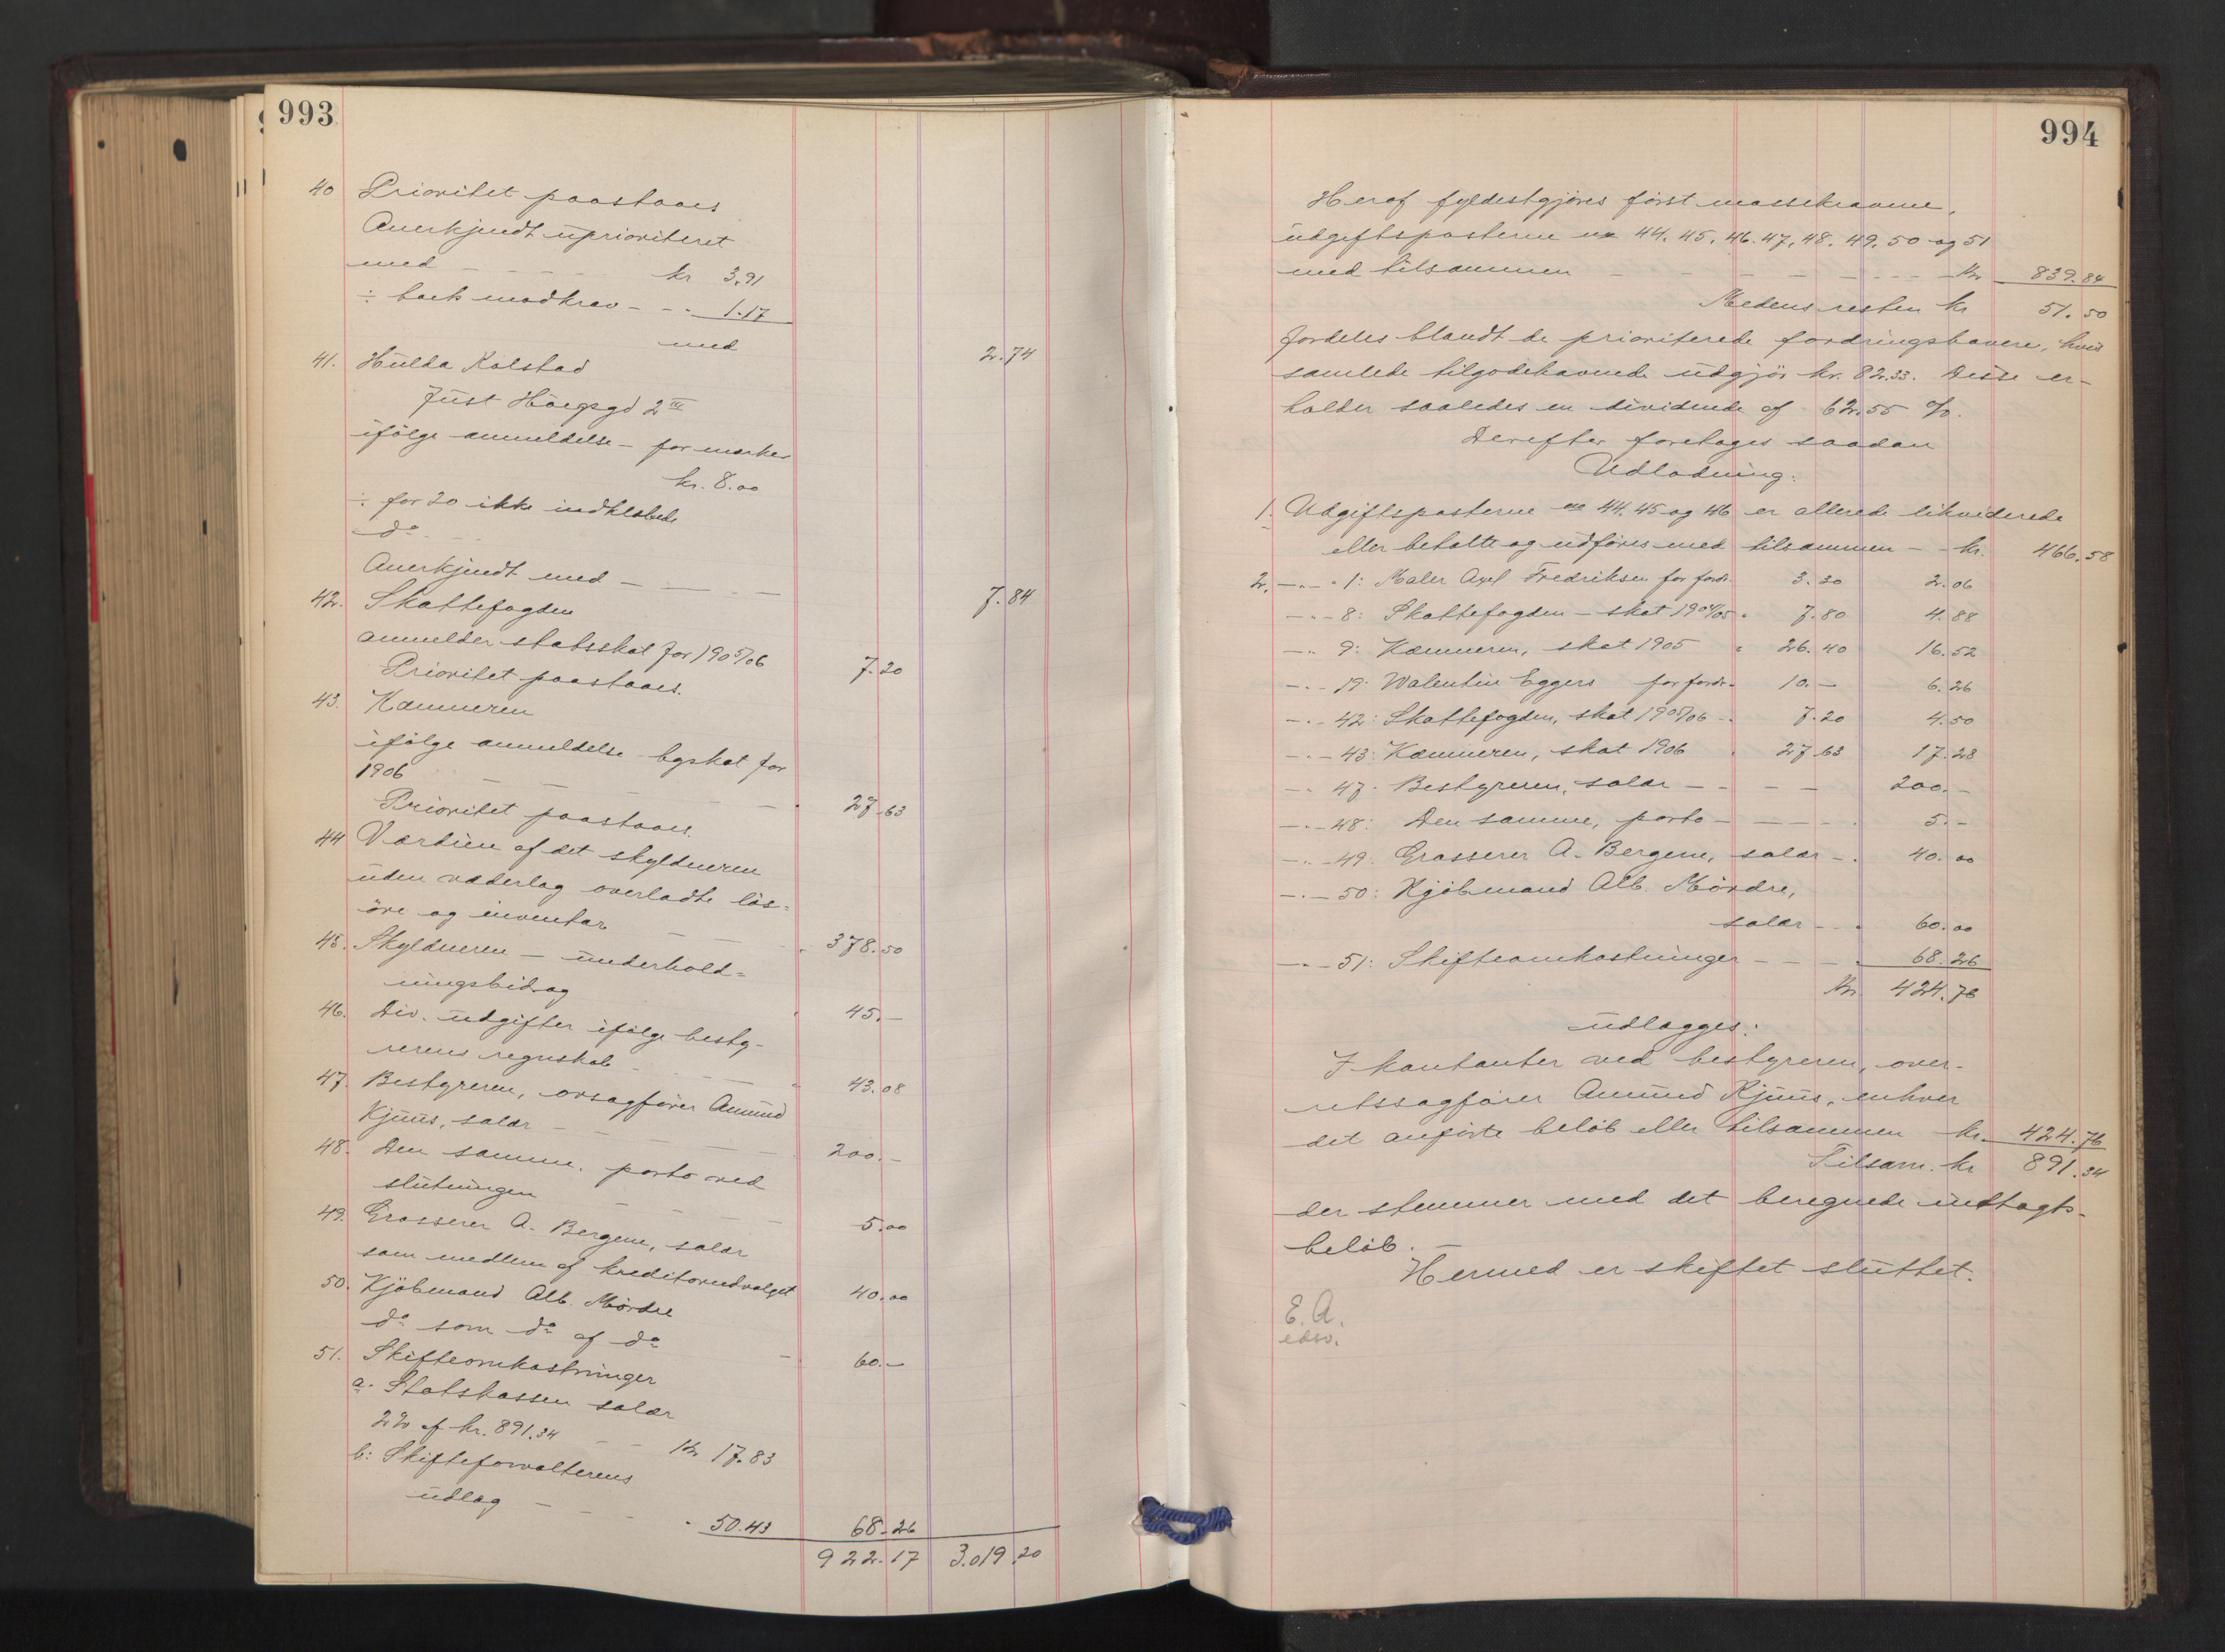 993
40 Prioritet paastaaes
Anerkjendt uprioriteret
med - - - - kr 3.91
÷ boets modkrav - - - 1.17
med 2.74
41. Hulda Kolstad
Just Høegsgd 2 III
ifölge anmeldelse - for merker
kr. 8.00
÷ for 20 ikke indklæbede
do
Anerkjendt med - - - - 7.84
42. Skattefogden
anmelder statsskat for 1905/06 7.20
Prioritet paastaaes.
43. Kæmneren
ifölge anmeldelse byskat for
1906 - - - - - 27.63
Prioritet paastaaes.
44 Værdien af det skyldneren
uden vederlag overladte lös-
öre og inventar - - 378.50
45. Skyldneren - underhold-
ningsbidrag 45.-
46. Div. udgifter ifölge besty-
rerens regnskab - - - 43.08
47. Bestyreren, orsagförer Amund
Kjuus, salær - - - - 200.-
48. Den samme. porto ved
slutningen - - - - 5.00
49. Grosserer A. Bergene, salær
som medlem af kreditorudvalget 40.00
50. Kjöbmand Alb. Mördre
do som do af do - 60.-
51. Skifteomkostninger
a. Statskassen salær
2% af kr. 891.34 - - Kr 17.83
b: Skifteforvalterens
udlæg - - - - 50.43 68.26
922.17 3.019.20
994
Heraf fyldestgjöres först massekravene,
udgiftsposterne no 44. 45. 46. 47, 48. 49. 50 og 51
med tilsammen - - - - - - - Kr 839.84
Medens resten kr 51.50
fordeles blandt de prioriterede fordringshavere, hvis
samlede tilgodehavende udgjör kr. 82.33. Disse er-
holder saaledes en dividende af 62.55 %.
Derefter foretages saadan
Udlodning:
1. Udgiftsposterne no 44. 45 og 46 er allerede likviderede
eller betalte og udföres med tilsammen - - kr. 466.58
2. - . - 1: Maler Axel Fredriksen for fordr. 3.30 2.06
- . - 8: Skattefogden - skat 1904/05 . 7.80 4.88
- . - 9: Kæmneren, skat 1905 " 26.40 16.52
- . - 19: Valentin Eggers for fordr. 10.- 6.26
- . - 42: Skattefogden, skat 1905/06 - . 7.20 4.50
- . - 43: Kæmneren, skat 1906 . 27.63 17.28
- . - 47. Bestyreren, salær - - - - 200.-
- . - 48: Den samme, porto - - - - - . 5.-
- . - 49. Grosserer A. Bergene, salær - . 40.00
- . - 50: Kjöbmand Alb. Mördre,
salær - - . 60.00
- . - 51: Skifteomkostninger - - - - 68.26
Kr 424.76
udlægges:
I kontanter ved bestyreren, over-
retssagförer Amund Kjuus, enhver
det anförte belöb eller tilsammen kr. 424.76
Tilsam. kr 891.34
der stemmer med det beregnede indtægts-
belöb. -
Hermed er skiftet sluttet.
E. A.